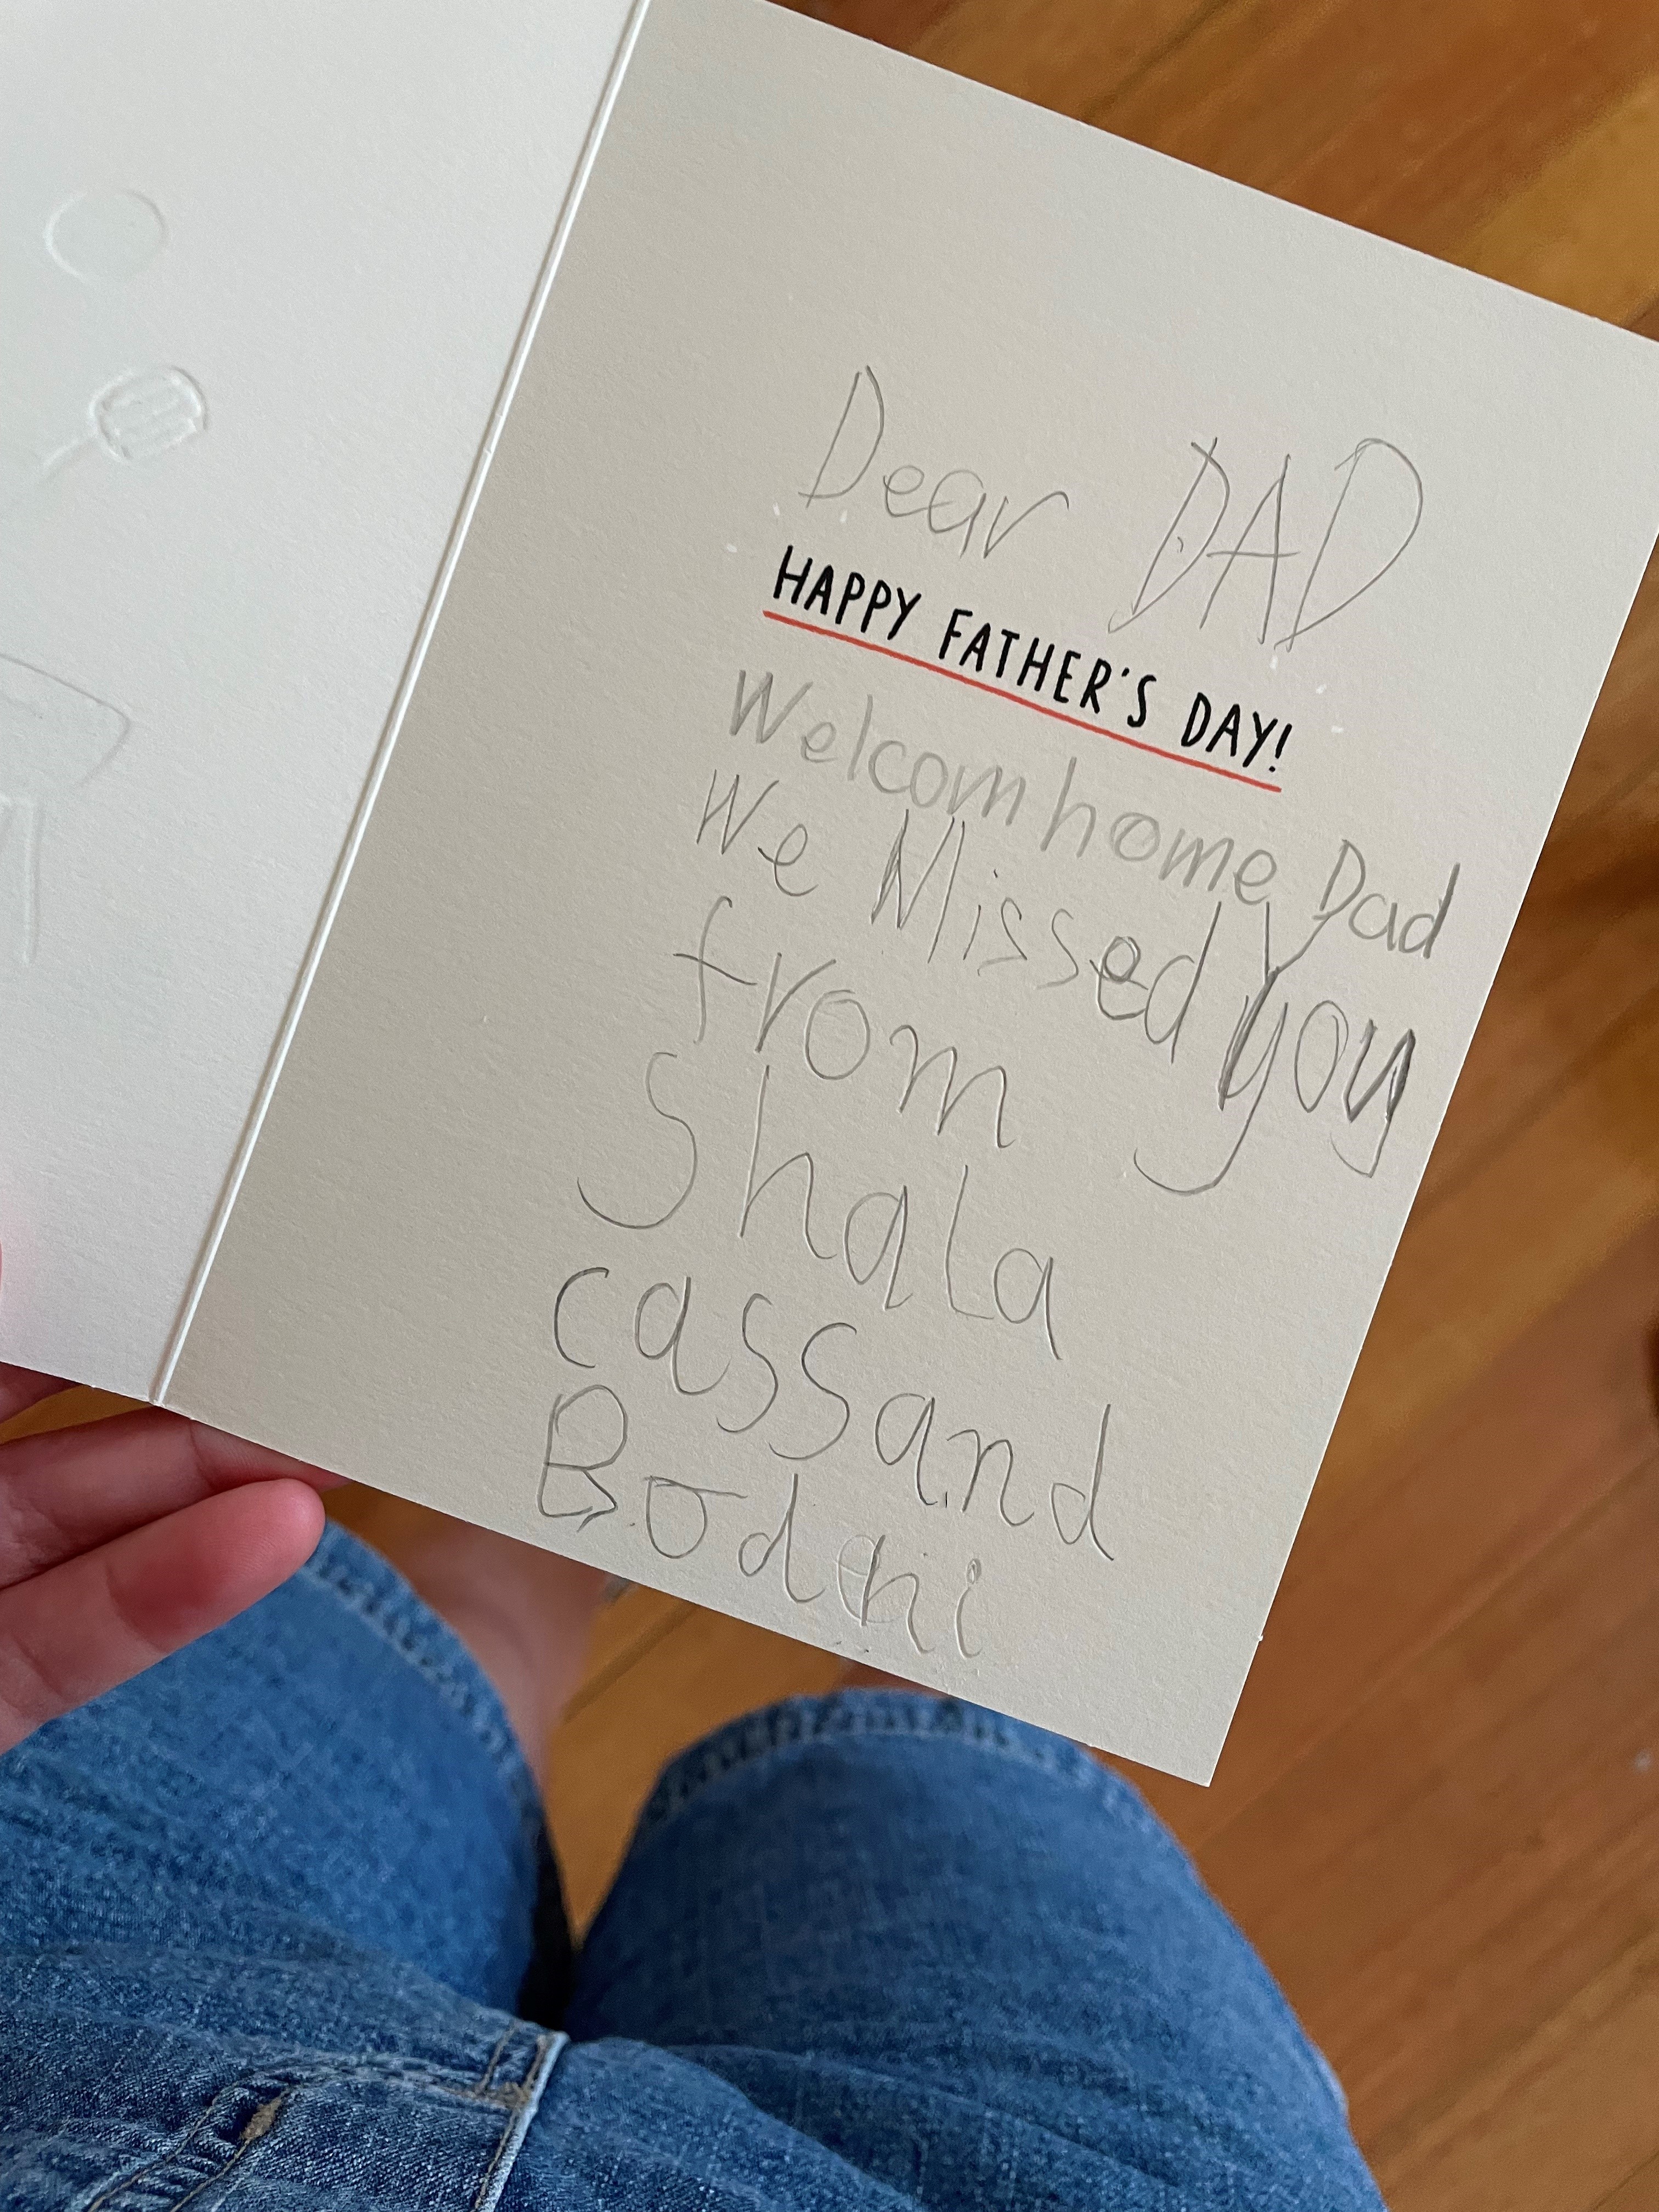 Dear DAD
HAPPY FATHER'S DAY!
Welcom home Dad
We Missed you
from
Shala
cassand
Bodeni